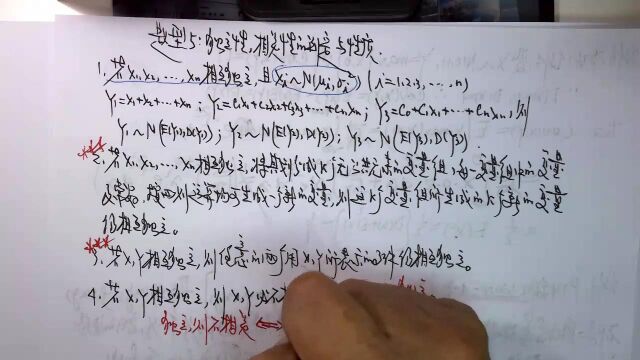 题型5:独立性,相关性的判定与性质.
1. 若X₁,X₂,…,Xₙ相互独立,且Xᵢ~N(μᵢ,σᵢ²) (i=1,2,3,…,n)
Y₁=X₁+X₂+…+Xₙ; Y₂=C₁X₁+C₂X₂+C₃X₃+…+CₙXₙ; Y₃=C₀+C₁X₁+…+CₙXₙ,则
Y₁~N(E(Y₁),D(Y₁)); Y₂~N(E(Y₂),D(Y₂)); Y₃~N(E(Y₃),D(Y₃)).
***
2. 若X₁,X₂,…,Xₙ相互独立,将其划分成k个无公共元素的变量组,每一变量组中的变量
及常数,按四则运算可生成一个新的变量,则这k个变量组所生成的k个新的变量
仍相互独立。
***
3. 若X,Y相互独立,则任意的两个用X,Y所表示的事件仍相互独立。
4. 若X,Y相互独立,则X,Y必不
独立,则不相关 ⇔